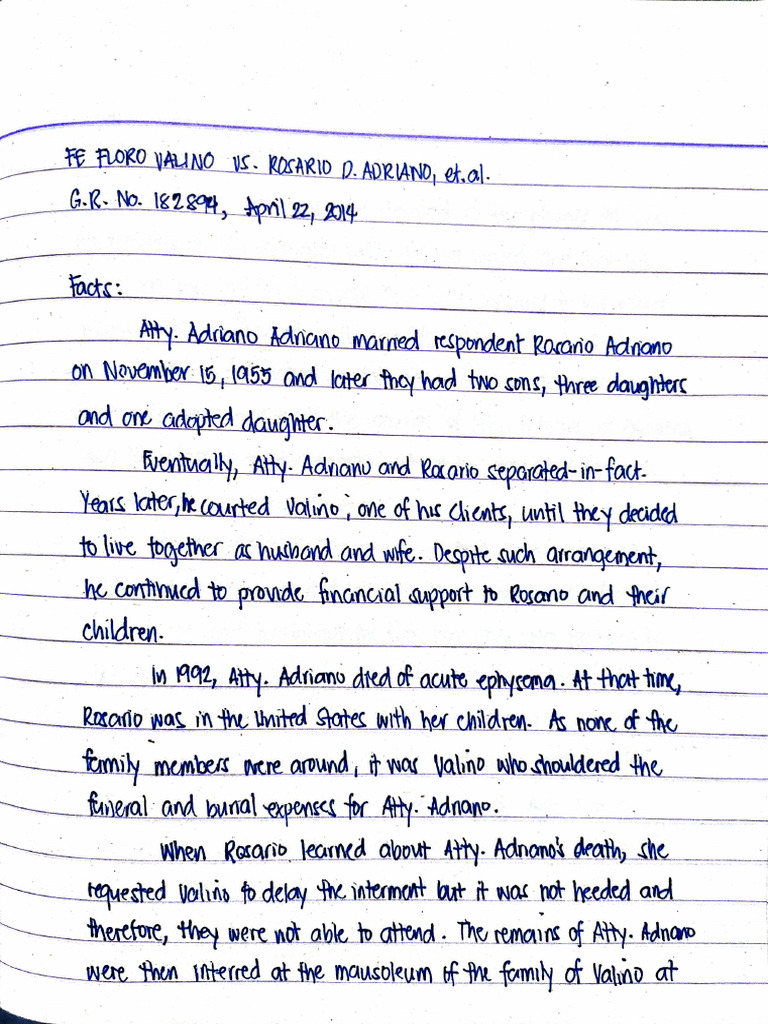 FE FLORO VALINO VS. ROSARIO D. ADRIANO, et.al.
G.R. No. 182894, April 22, 2014
Facts:
Atty. Adriano Adriano married respondent Rosario Adriano
on November 15, 1955 and later they had two sons, three daughters
and one adopted daughter.
Eventually, Atty. Adriano and Rosario separated-in-fact.
Years later, he courted Valino, one of his clients, until they decided
to live together as husband and wife. Despite such arrangement,
he continued to provide financial support to Rosario and their
children.
In 1992, Atty. Adriano died of acute ephysema. At that time,
Rosario was in the United States with her children. As none of the
family members were around, it was Valino who shouldered the
funeral and burial expenses for Atty. Adriano.
When Rosario learned about Atty. Adriano's death, she
requested Valino to delay the interment but it was not heeded and
therefore, they were not able to attend. The remains of Atty. Adriano
were then interred at the mausoleum of the family of Valino at